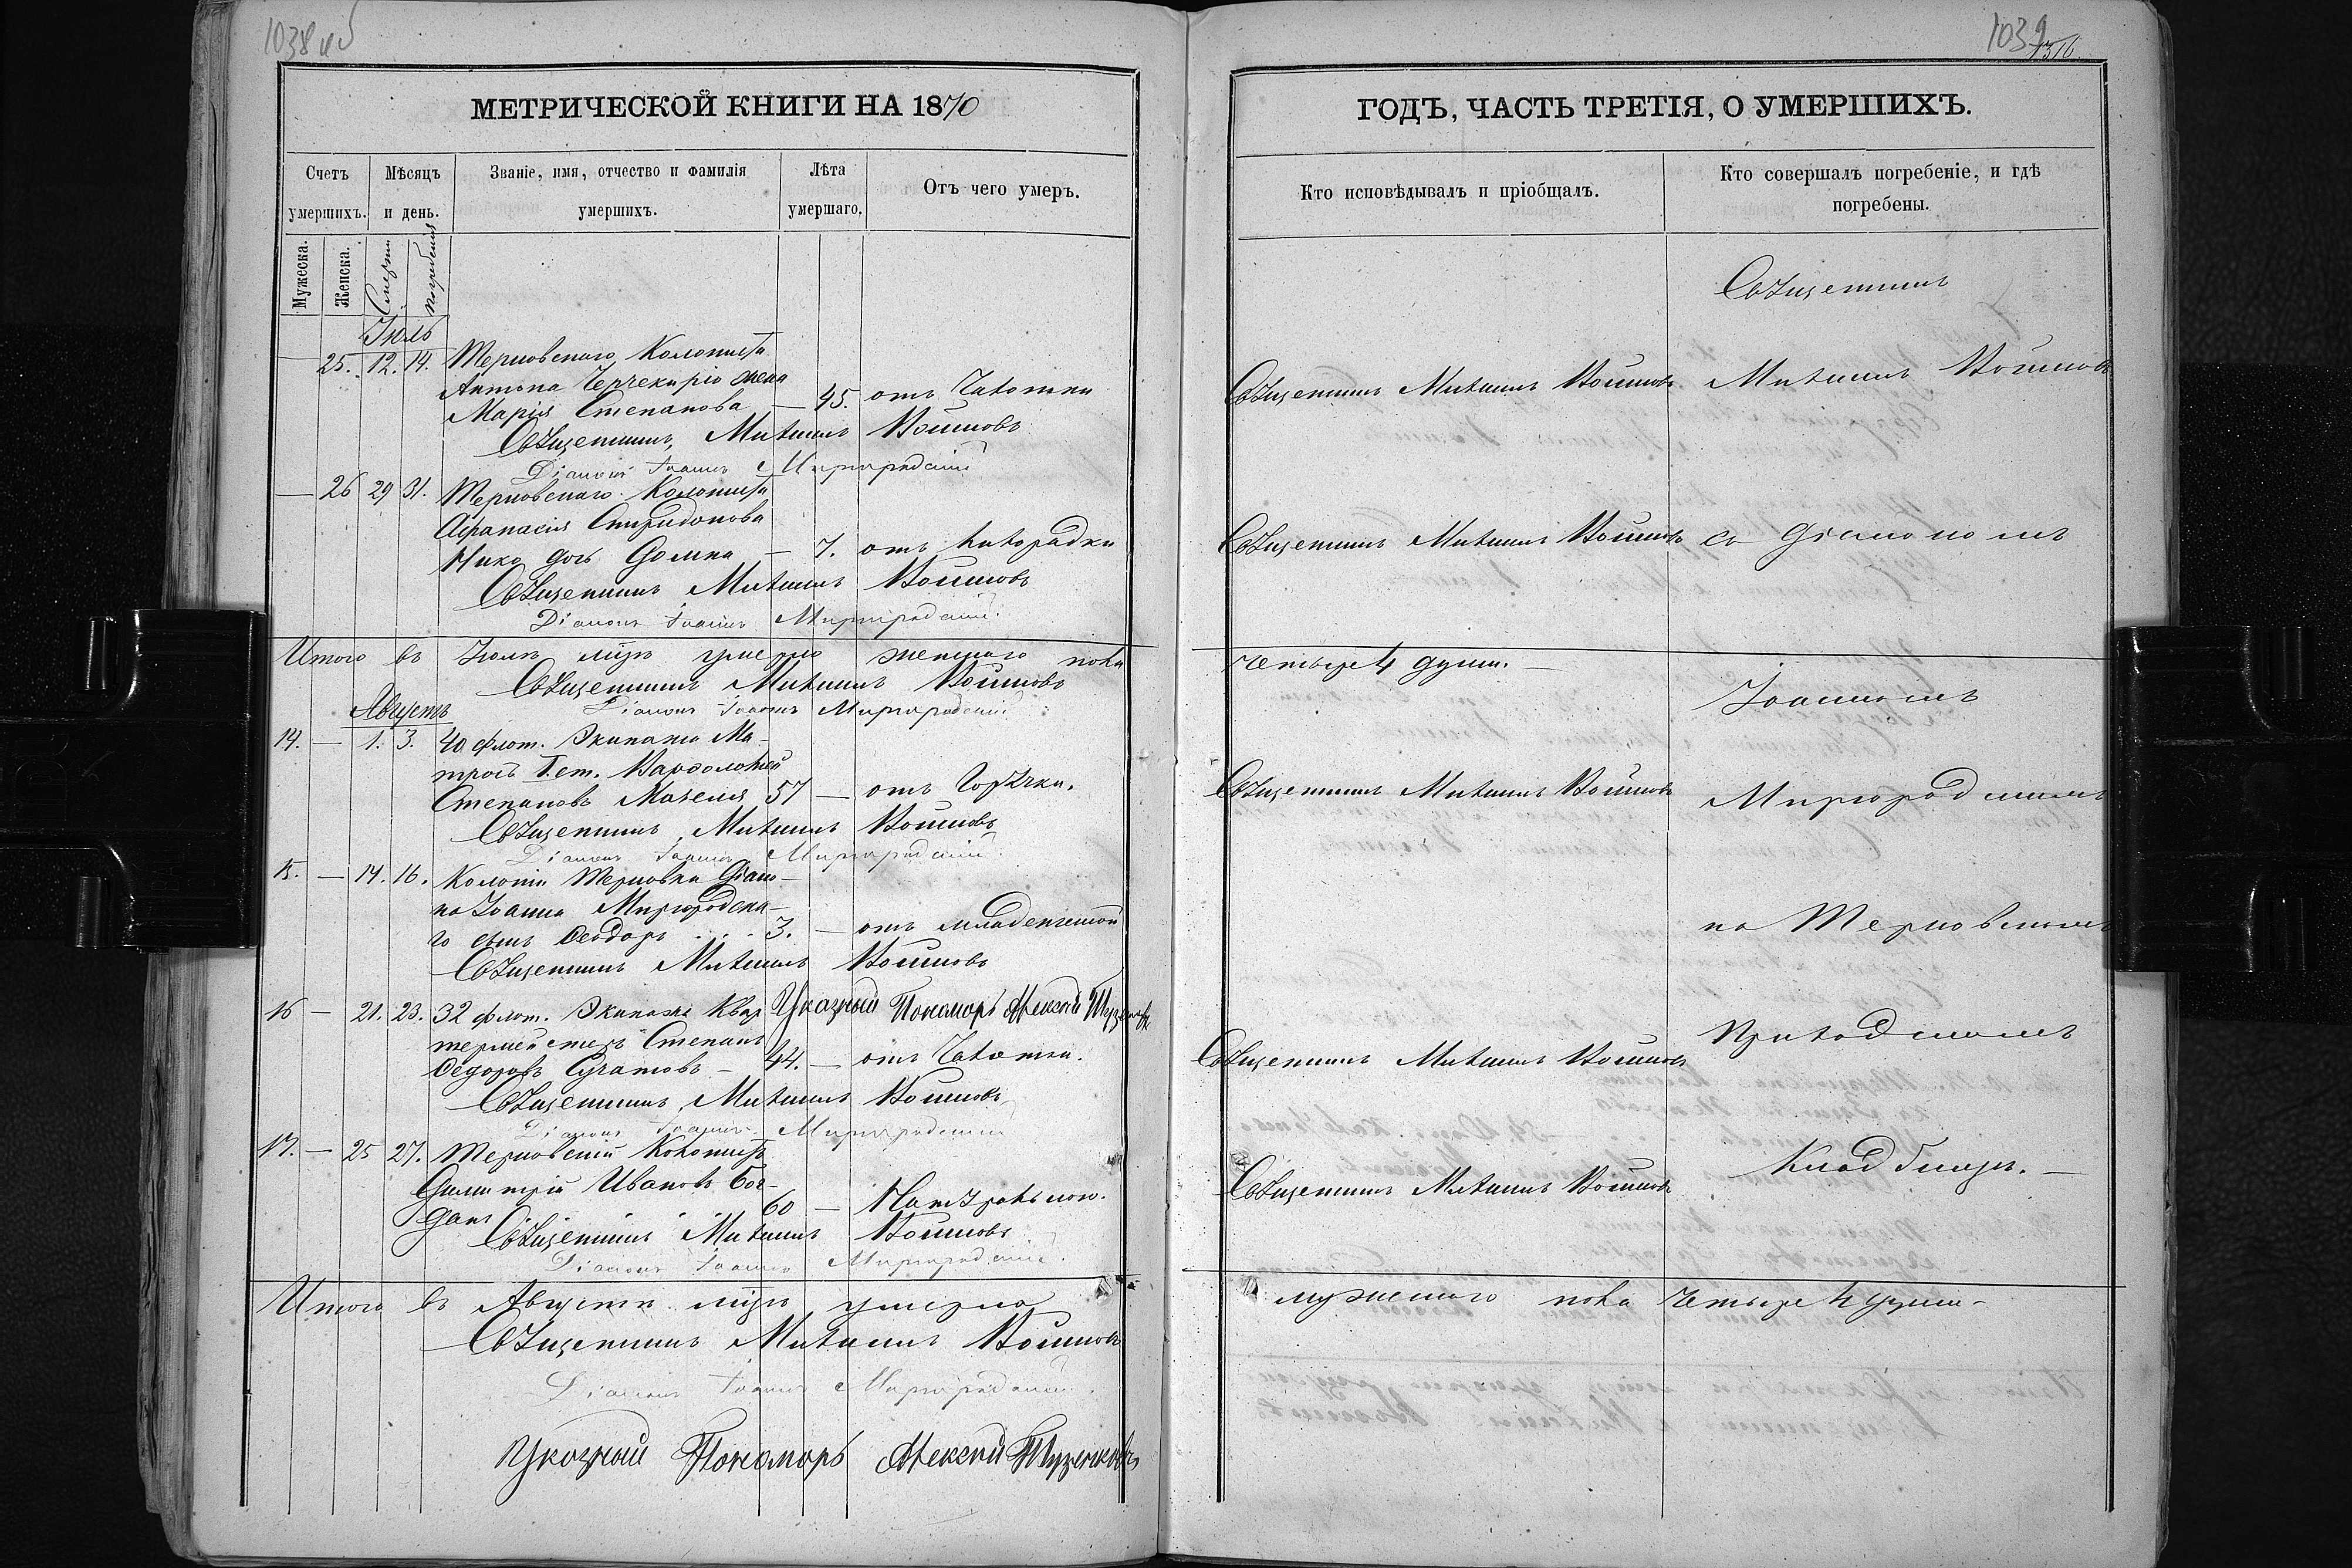 1038 об
МЕТРИЧЕСКОЙ КНИГИ НА 1870
Счетъ умершихъ.
Мѣсяцъ и день.
Званіе, имя, отчество и фамилія умершихъ.
Лѣта умершаго.
Отъ чего умеръ.
Мужеска.
Женска.
Смерти
погребенія
Іюль
— 25. 12. 14. Терновскаго Колониста
Антона Чернекиріо жена
Марія Степанова — 45. отъ Чахотки
Священникъ Михаилъ Войновъ
Діаконъ Іоаннъ Миргородскій
— 26 29 31. Терновскаго Колониста
Афанасія Спиридонова
Нико дочь Домна — 7. отъ лихорадки
Священникъ Михаилъ Войновъ
Діаконъ Іоаннъ Миргородскій.
Итого въ Іюлѣ м҃цѣ умерло женскаго пола
Священникъ Михаилъ Войновъ
Діаконъ Іоаннъ Миргородскій.
Августъ
14. — 1. 3. 40 флот. Экипажа Ма-
тросъ 1. ст. Варфоломей
Степановъ 57 — отъ Горячки.
Священникъ Михаилъ Войновъ
Діаконъ Іоаннъ Миргородскій.
15. — 14. 16. Колоніи Терновки Діако-
на Іоанна Миргородска-
го сынъ Феодоръ . . . 3. — отъ младенческой
Священникъ Михаилъ Войновъ
Указный Пономарь Алексѣй
16 — 21. 23. 32 флот. Экипажа Квар
термейстеръ Степанъ
Федоровъ — 44. — отъ Чахотки.
Священникъ Михаилъ Войновъ
Діаконъ Іоаннъ Миргородскій
17. — 25 27. Терновскій Колонистъ
Димитрій Ивановъ Бог-
данъ 60 — Натурально.
Священникъ Михаилъ Войновъ
Діаконъ Іоаннъ Миргородскій.
Итого въ Августѣ м҃цѣ умерло
Священникъ Михаилъ Войновъ
Діаконъ Іоаннъ Миргородскій.
Указный Пономарь Алексѣй
1039
ГОДЪ, ЧАСТЬ ТРЕТІЯ, О УМЕРШИХЪ.
Кто исповѣдывалъ и пріобщалъ.
Кто совершалъ погребеніе, и гдѣ погребены.
Священникъ
Священникъ Михаилъ Войновъ Михаилъ Войновъ
Священникъ Михаилъ Войновъ съ Діакономъ
четыре 4 души. —
Іоанномъ
Священникъ Михаилъ Войновъ Миргородскимъ
на Терновскомъ
Приходскомъ
Священникъ Михаилъ Войновъ
Кладбищѣ. —
Священникъ Михаилъ Войновъ
мужескаго пола четыре 4 души —